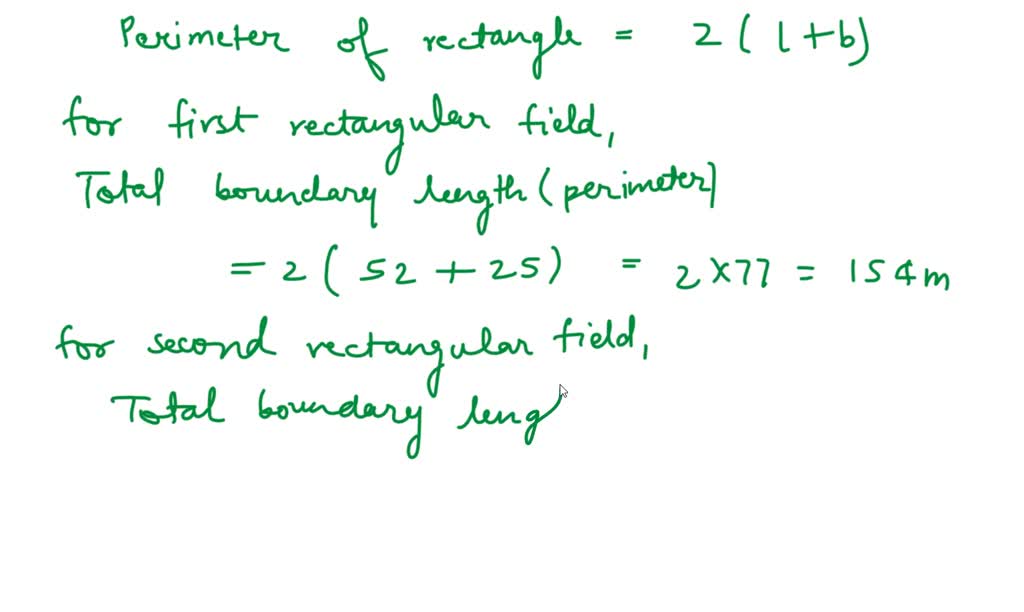 Perimeter of rectangle = 2(l+b)
for first rectangular field,
Total boundary length (perimeter)
= 2(52+25) = 2×77 = 154m
for second rectangular field,
Total boundary leng